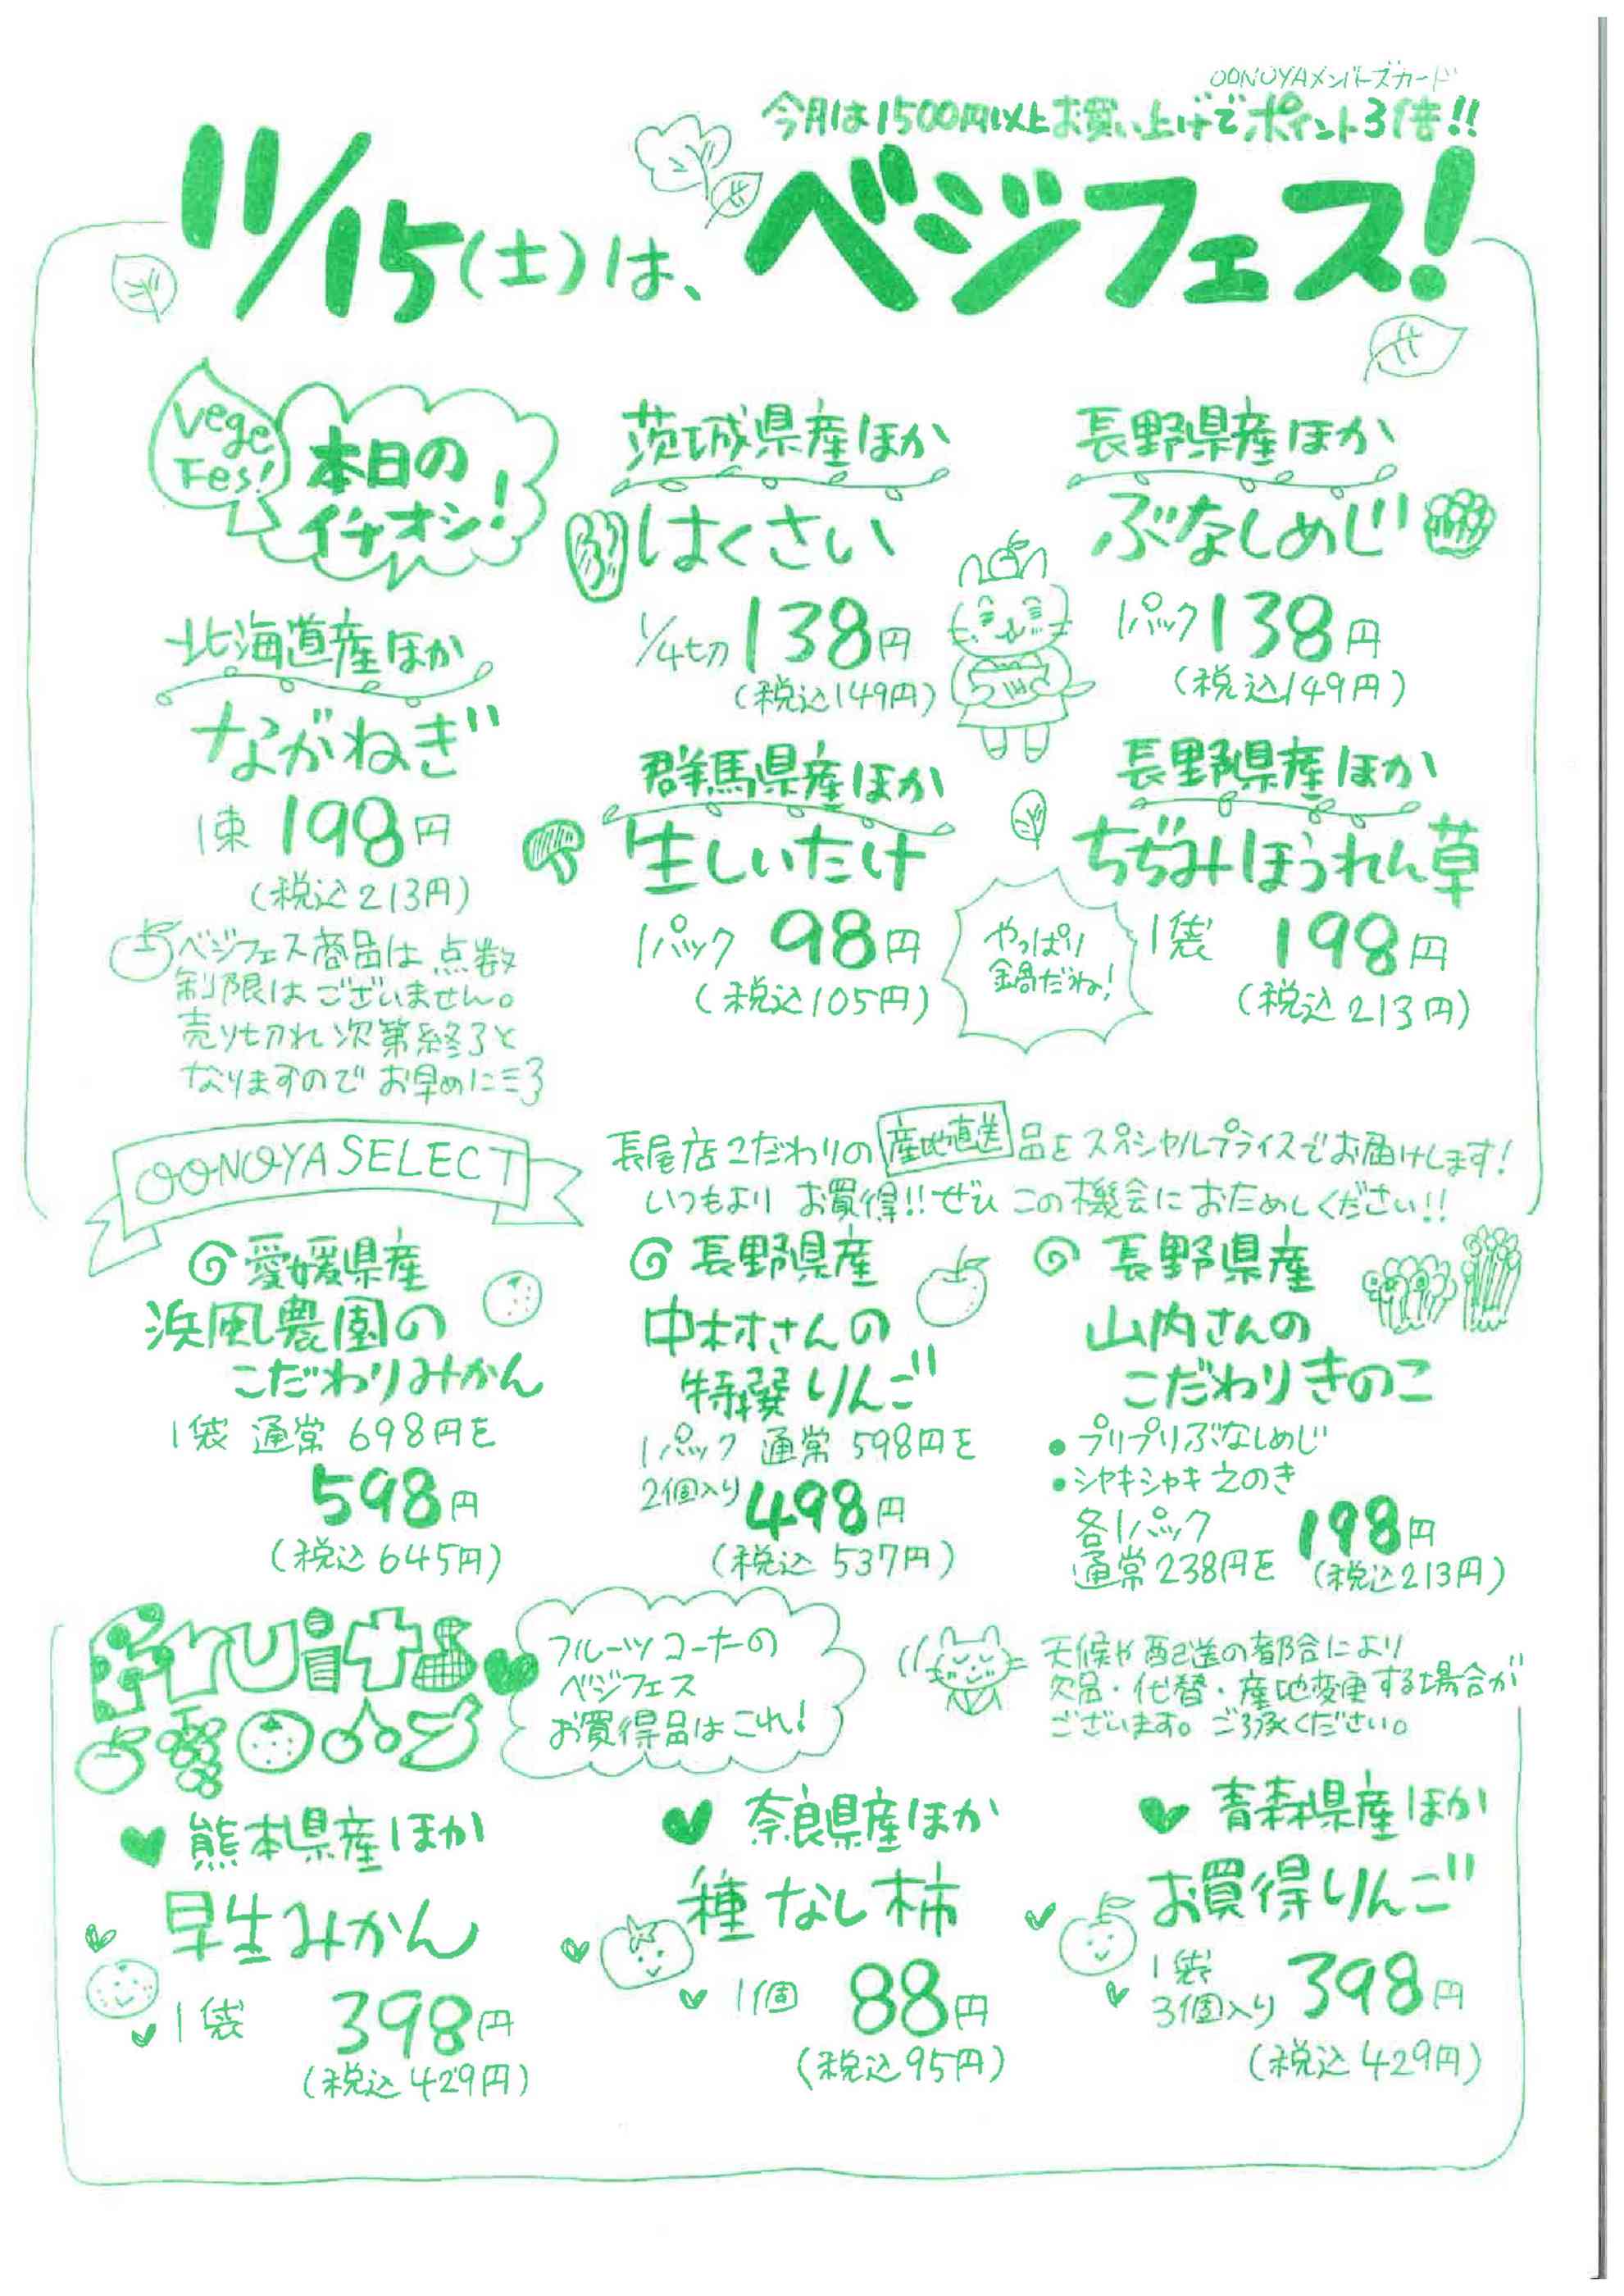 OONOYAメンバーズカード
今月は1500円以上お買い上げでポイント3倍!!
11/15(土)は、ベジフェス!
Vege
Fes!
本日の
イチオシ!
北海道産ほか
ながねぎ
1束 198円
(税込213円)
ベジフェス商品は点数
制限はございません。
売り切れ次第終了と
なりますのでお早めに
茨城県産ほか
はくさい
1/4切 138円
(税込149円)
長野県産ほか
ぶなしめじ
1パック 138円
(税込149円)
群馬県産ほか
生しいたけ
1パック 98円
(税込105円)
やっぱり
鍋だね!
長野県産ほか
ちぢみほうれん草
1袋 198円
(税込213円)
OONOYA SELECT
長尾店こだわりの産地直送品をスペシャルプライスでお届けします!
いつもより お買得!!ぜひ この機会におためしください!!
愛媛県産
浜風農園の
こだわりみかん
1袋 通常 698円を
598円
(税込645円)
長野県産
中村さんの
特撰りんご
1パック 通常 598円を
2個入り 498円
(税込 537円)
長野県産
山内さんの
こだわりきのこ
・プリプリぶなしめじ
・シャキシャキえのき
各1パック
通常238円を 198円
(税込213円)
Fruits
フルーツコーナーの
ベジフェス
お買得品はこれ!
天候や配送の都合により
欠品・代替・産地変更する場合が
ございます。ご了承ください。
熊本県産ほか
早生みかん
1袋 398円
(税込429円)
奈良県産ほか
種なし柿
1個 88円
(税込95円)
青森県産ほか
お買得りんご
1袋
3個入り 398円
(税込429円)